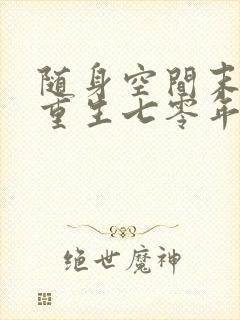 随身空間末
重生七零年
绝世魔神